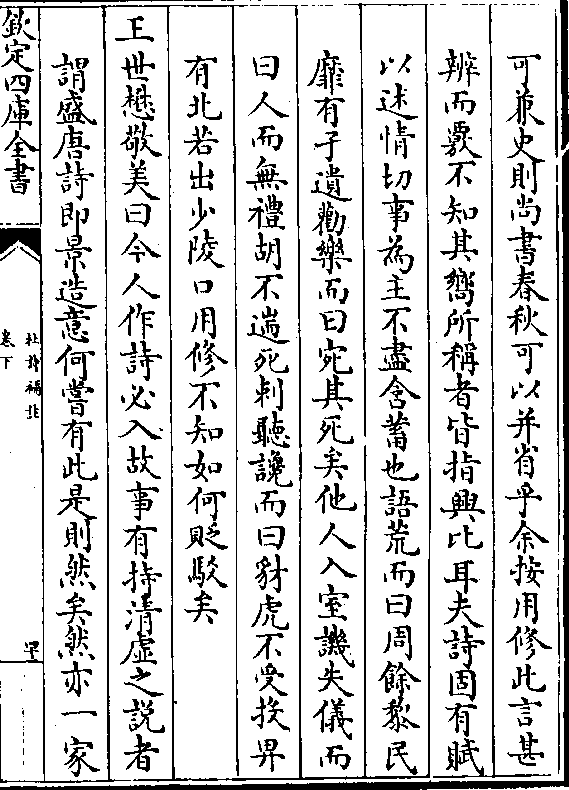 可兼史則尚書春秋可以并省乎余按用修此言甚
辨而覈不知其嚮所稱者皆指興比耳夫詩固有賦
以述情切事為主不盡含蓄也語荒而曰周餘黎民
靡有孑遺勸樂而曰宛其死矣他人入室譏失儀而
曰人而無禮胡不遄死刺聽讒而曰豺虎不受投畀
有北若出少陵口用修不知如何貶駁矣
王世懋敬美曰今人作詩必入故事有持清虛之説者
謂盛唐詩即景造意何嘗有此是則然矣然亦一家
欽定四庫全書
杜詩攟
卷下